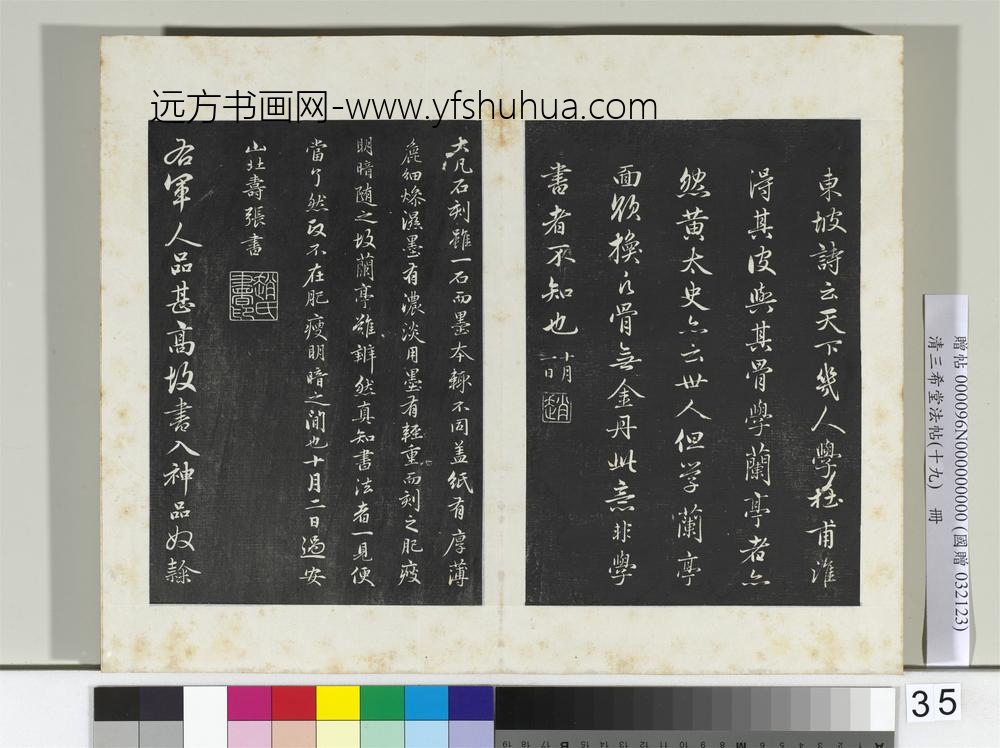 远方书画网-www.yfshuhua.com
東坡詩云天下幾人學杜甫誰
得其皮與其骨學蘭亭者亦
然黃太史亦云世人但學蘭亭
面欲換凡骨無金丹此意非學
書者不知也 十一月三日
趙
大凡石刻雖一石而墨本輒不同蓋紙有厚薄
麁細燥濕墨有濃淡用墨有輕重而刻之肥瘦
明暗隨之故蘭亭難辨然真知書法者一見便
當了然政不在肥瘦明暗之間也十月二日過安
山北壽張書
趙氏書印
右軍人品甚高故書入神品奴隸
贈帖 000096N000000000 (國贈 032123)
清三希堂法帖(十九) 冊
35
19 18 17 16 15 B 12 11 10 9 8 M 6 5 4 3 2 1 A